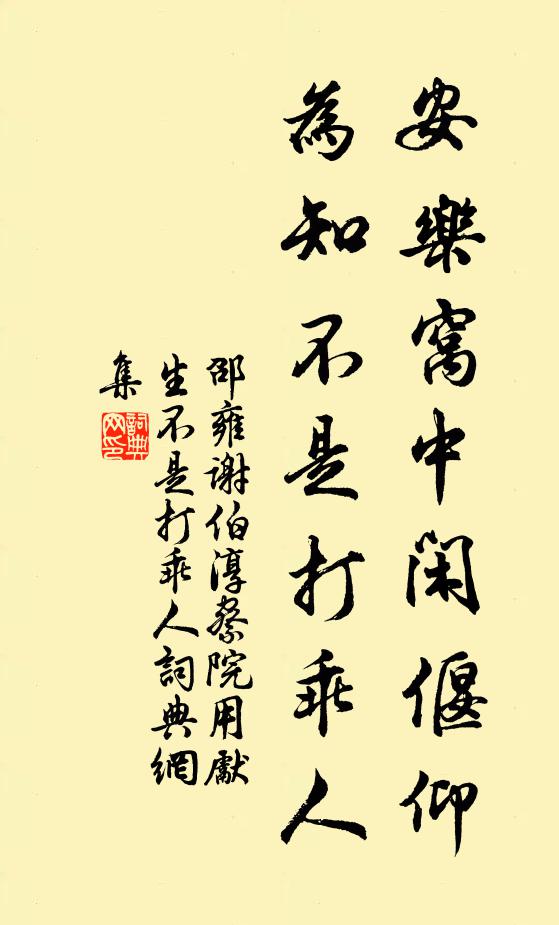 安樂窩中閑偃仰
為知不是打乖人
邵雍謝伯淳察院用獻
生不是打乖人詞典網
集
詞典
网印